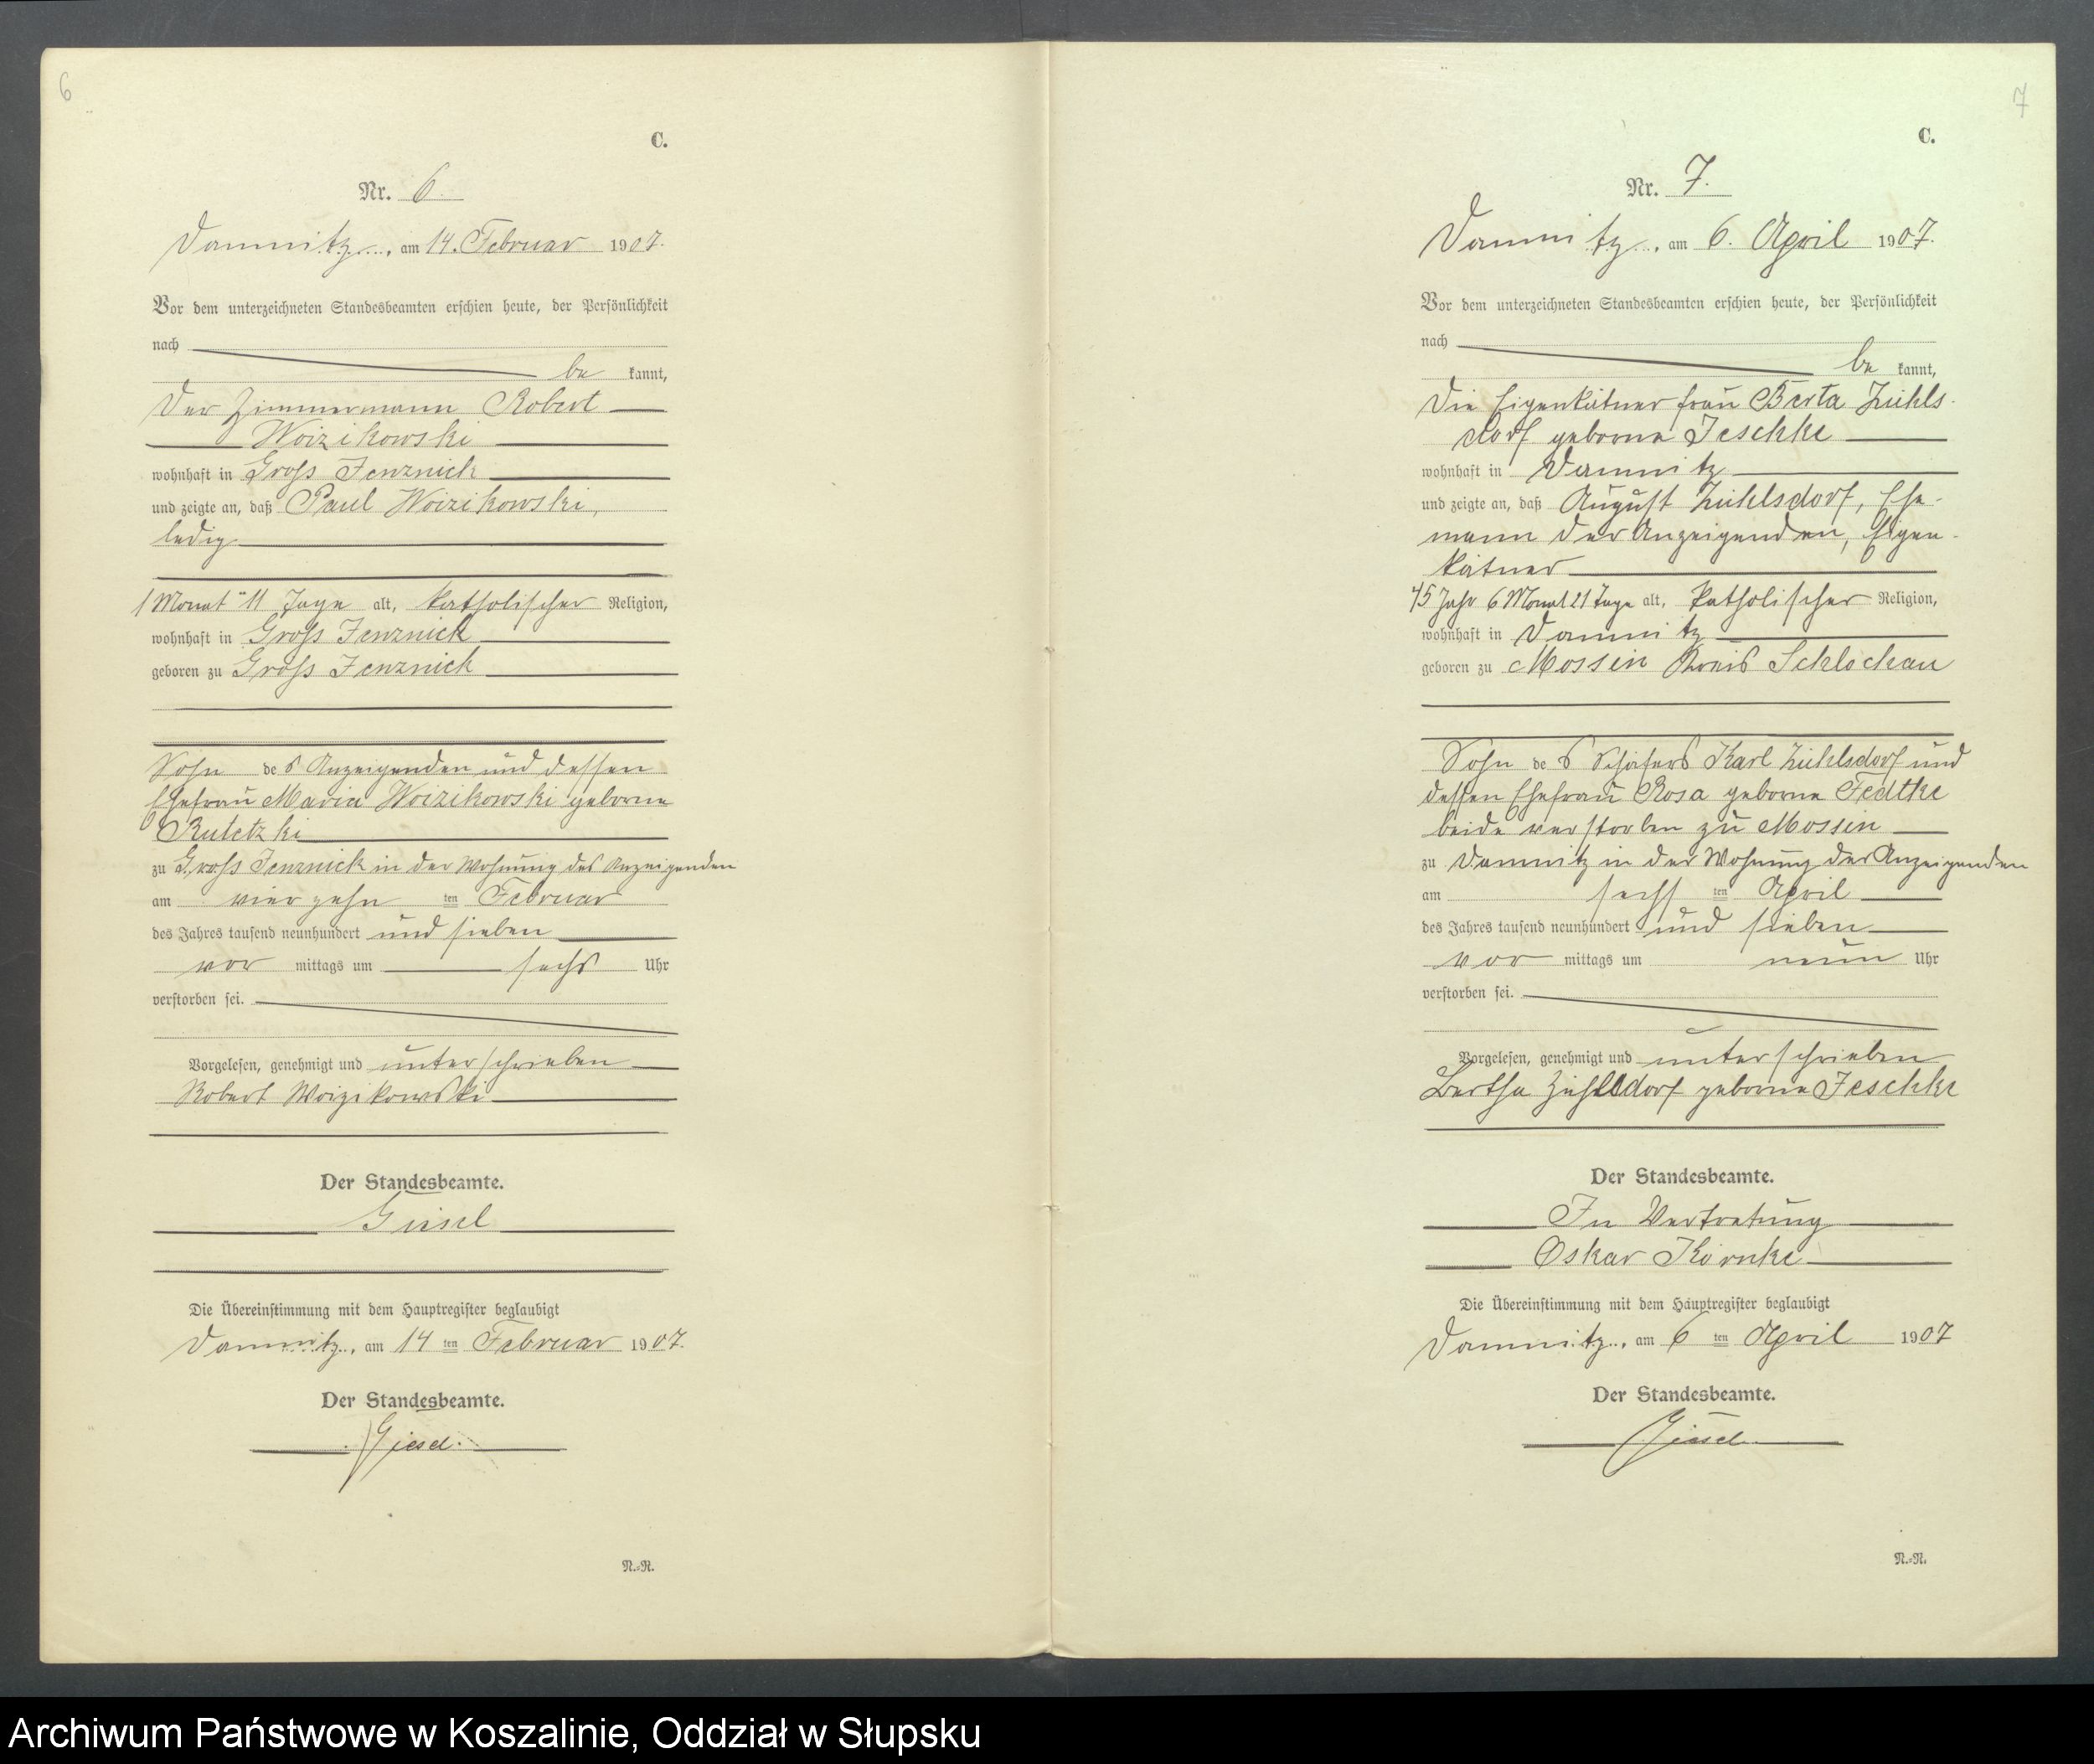 6
C.
Nr. 6.
Damnitz, am 14. Februar 1907.
Vor dem unterzeichneten Standesbeamten erschien heute, der Persönlichkeit
nach
be kannt,
der Zimmermann Robert
Woizikowski
wohnhaft in Groß Jenznick
und zeigte an, daß Paul Woizikowski,
ledig
1 Monat 11 Tage alt, katholischer Religion,
wohnhaft in Groß Jenznick
geboren zu Groß Jenznick
Sohn des Anzeigenden und dessen
Ehefrau Maria Woizikowski geborne
Rutetzki
zu Groß Jenznick in der Wohnung des Anzeigenden
am vierzehn ten Februar
des Jahres tausend neunhundert und sieben
vor mittags um sechs Uhr
verstorben sei.
Vorgelesen, genehmigt und unterschrieben
Robert Woizikowski
Der Standesbeamte.
Giesel
Die Übereinstimmung mit dem Hauptregister beglaubigt
Damnitz, am 14 ten Februar 1907.
Der Standesbeamte.
Giesel.
N.-R.
7
C.
Nr. 7.
Damnitz, am 6. April 1907.
Vor dem unterzeichneten Standesbeamten erschien heute, der Persönlichkeit
nach
be kannt,
die Eigenkätner frau Berta Zühls-
dorf geborne Jeschke
wohnhaft in Damnitz
und zeigte an, daß August Zühlsdorf, Ehe-
mann der Anzeigenden, Eigen-
kätner
45 Jahr 6 Monat 21 Tage alt, katholischer Religion,
wohnhaft in Damnitz
geboren zu Mossin Kreis Schlochau
Sohn des Schäfers Karl Zühlsdorf und
dessen Ehefrau Rosa geborne Fedtke
beide verstorben zu Mossin
zu Damnitz in der Wohnung der Anzeigenden
am sechs ten April
des Jahres tausend neunhundert und sieben
vor mittags um neun Uhr
verstorben sei.
Vorgelesen, genehmigt und unterschrieben
Bertha Zühlsdorf geborne Jeschke
Der Standesbeamte.
In Vertretung
Oskar Körnke
Die Übereinstimmung mit dem Hauptregister beglaubigt
Damnitz, am 6 ten April 1907
Der Standesbeamte.
Giesel
N.-R.
Archiwum Państwowe w Koszalinie, Oddział w Słupsku